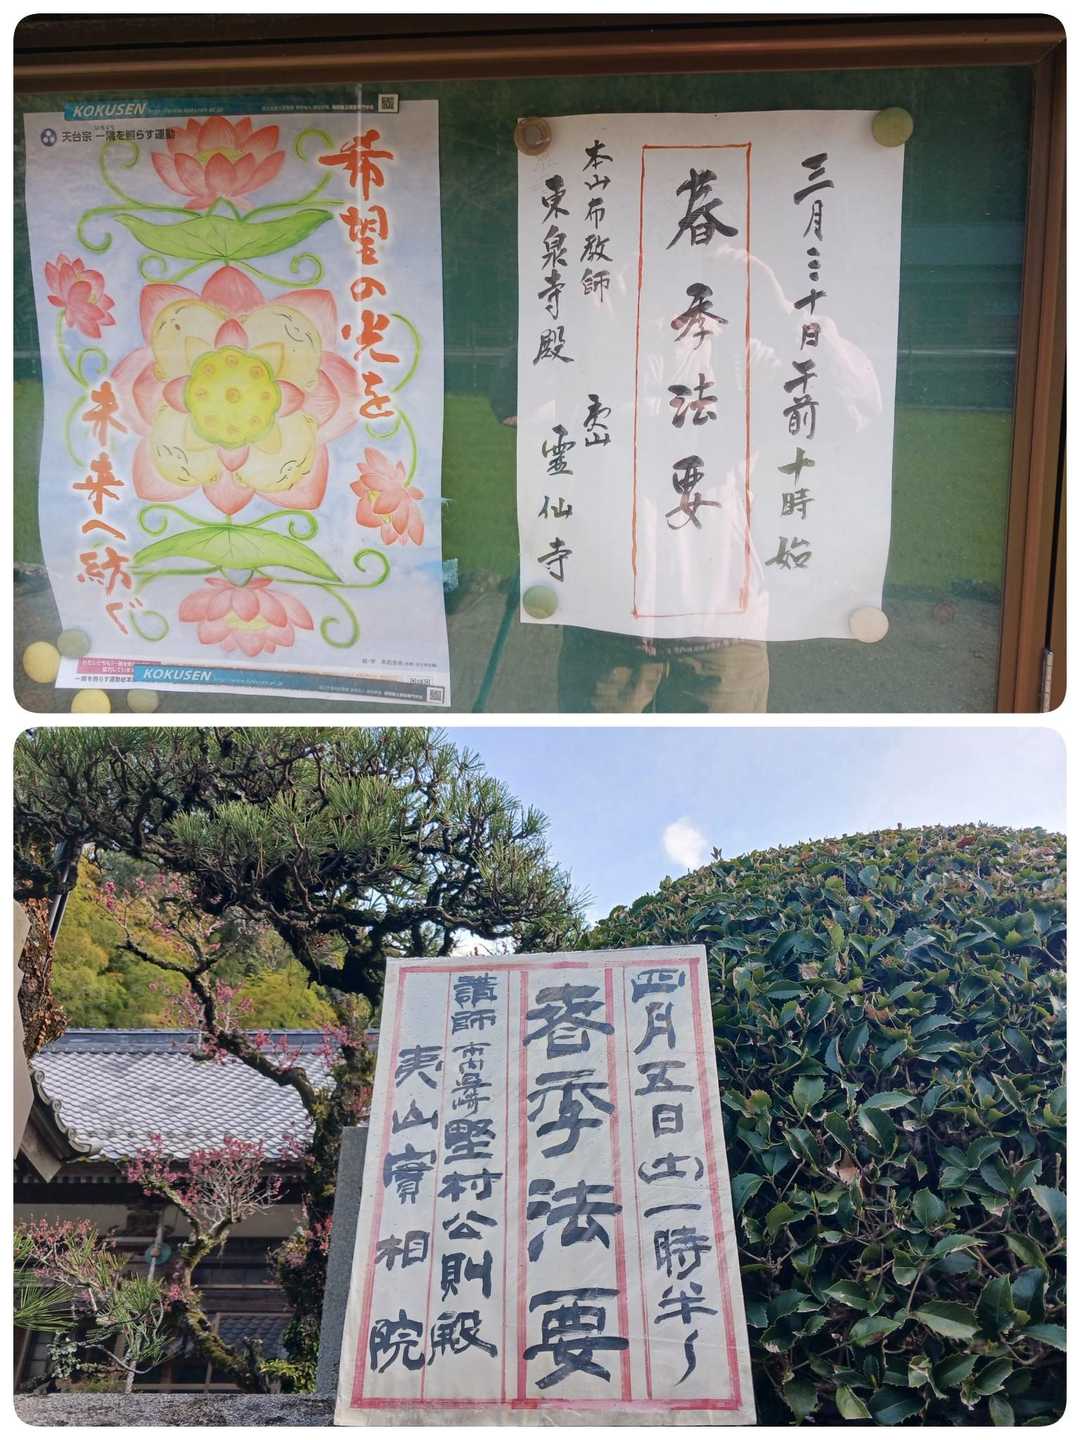 KOKUSEN
天台宗 一隅を照らす運動
希望の光を
未来へ紡ぐ
一隅を照らす運動
KOKUSEN
三月三十日午前十時始
春季法要
本山布教師
東泉寺殿
夷山
霊仙寺
四月五日(土)一時半〜
春季法要
講師
堅村公則殿
夷山實相院